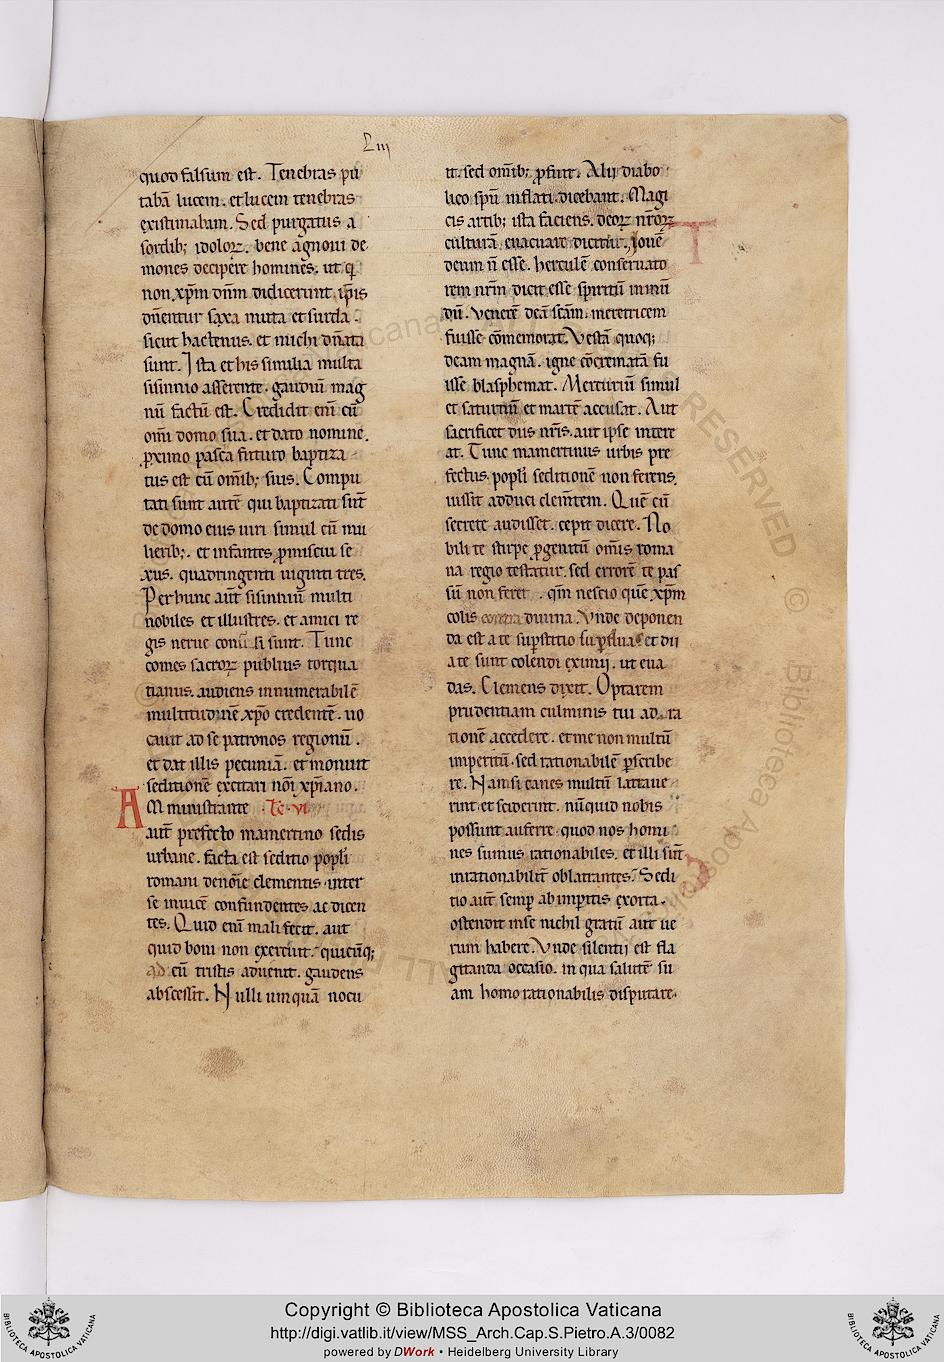 Liij
quod falsum est. Tenebras pu
tabā lucem. et lucem tenebras
existimabam. Sed purgatus a
sordib; idoloꝝ. bene agnoui de
mones decipere homines. ut q̄
non xp̄m dn̄m didicerunt. ip̄is
dn̄entur saxa muta et surda.
sicut hactenus. et michi dn̄ata
sunt. Ista et his similia multa
sisinnio asserente. gaudiū mag
nū factū est. Credidit eni cū
om̄i domo sua. et dato nomine.
ꝓximo pasca futuro baptiza
tus est cū om̄ib; suis. Compu
tati sunt autē qui baptizati sūt
de domo eius uiri simul cū mu
lierib;. et infantes ꝓmiscui se
xus. quadringenti uiginti tres.
Per hunc aūt sisinniū multi
nobiles et illustres. et amici re
gis nerue conūsi sunt. Tunc
comes sacroꝝ publius torqua
tianus. audiens innumerabilē
multitudinē xp̄o credentē. uo
cauit ad se patronos regionū.
et dat illis pecuniā. et monuit
seditionē excitari nōi xp̄iano.
AM ministrante .Lc̄. vi
aūt prefecto mamertino sedis
urbane. facta est seditio popl̄i
romani de nōie clementis inter
se inuicē confundentes ac dicen
tes. Quid enī mali fecit. aut
quid boni non exercuit. quicūq;
ad cū tristis aduenit. gaudens
abscessit. Nulli umquā nocu
it. sed om̄ib; ꝓfuit. Alij diabo
lico sp̄u inflati dicebant. Magi
cis artib; ista faciens. deoꝝ nr̄oꝝ
T
culturā euacuare dicitur. Iouē
deum n̄ esse. herculē conseruato
rem nr̄m dicit esse spiritū inmū
dū. Venerē deā sc̄am. meretricem
fuisse cōmemorat. Vestā quoq;
deam magnā. igne cōcrematā fu
isse blasphemat. Mercuriū simul
et saturnū et martē accusat. Aut
sacrificet diis nr̄is. aut ipse intere
at. Tunc mamertinus urbis pre
fectus. popl̄i seditionē non ferens.
iussit adduci clem̄tem. Quē cū
secrete audisset. cepit dicere. No
bili te stirpe ꝓgenitū om̄is roma
na regio testatur. sed errorē te pas
sū non feret. qm̄ nescio quē xp̄m
colis contra diuina. Vnde deponen
da est a te suꝑstitio suꝑflua. et dii
a te sunt colendi eximij. ut eua
das. Clemens dixit. Optarem
prudentiam culminis tui ad ra
tionē accedere. et me non multū
imperitū. sed rationabilē ꝑscribe
re. Nam si canes multū latraue
rint et sciderint. nūquid nobis
possunt auferre quod nos homi
nes sumus rationabiles. et illi sūt
inrationabilit̄ oblatrantes. Sedi
tio aūt semꝑ ab inꝑitis exorta.
ostendit in se nichil gratū aut ue
rum habere. Vnde silentii est fla
gitanda occasio. in qua salutē su
am homo rationabilis disputare.
Copyright © Biblioteca Apostolica Vaticana
http://digi.vatlib.it/view/MSS_Arch.Cap.S.Pietro.A.3/0082
powered by DWork • Heidelberg University Library